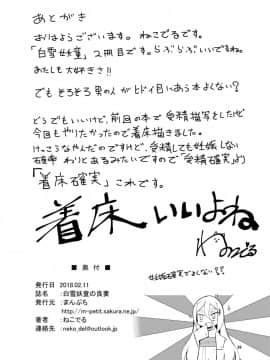 あとがき
おはようございます。ねこでるです。
「白雪妖童」2冊目です。らぶらぶいいですね。
わたしも大好きさ!!
でもそろそろ男の人がヒドイ目にあう本よくない?
どうでもいいけど、前回の本で受精描写をしたけど
今回もやりたかったので着床描きました。
けっこうなやんだのですけど、受精しても妊娠しない
確率わりとあるみたいですので「受精確実」より
「着床確実」これです。
着床いいよね
ねこでる
■奥付■
発行日 2018.02.11
誌名 :白雪妖童の良妻
発行元 :まんぷち
http://m-petit.sakura.ne.jp/
著者 :ねこでる
連絡先 :neko_del@outlook.jp
妊娠確実でよくない??